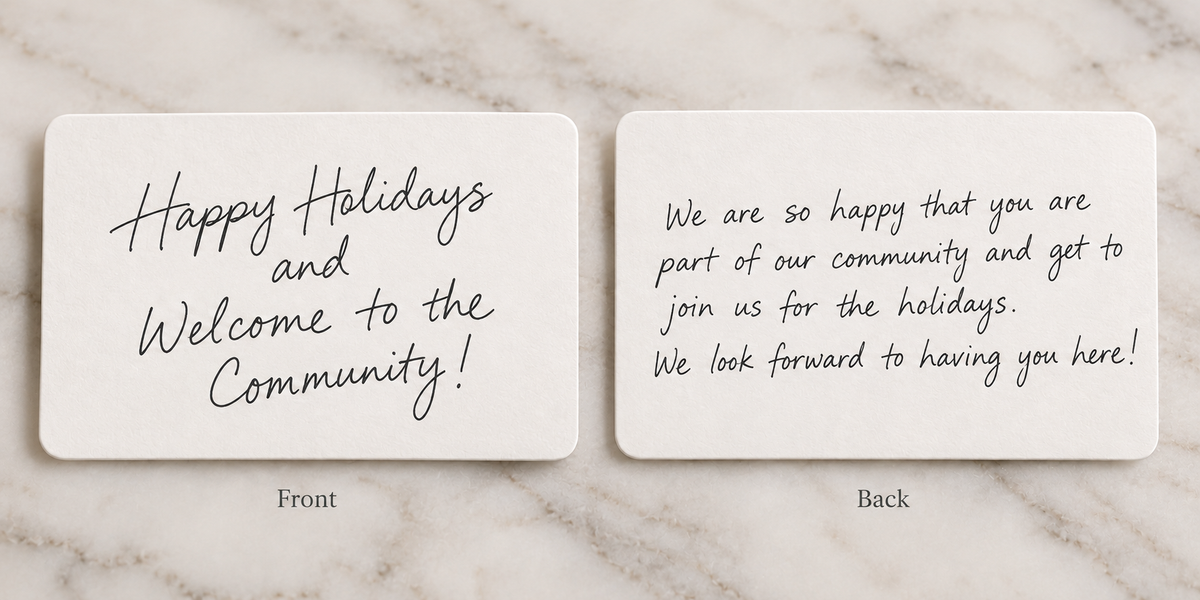 Happy Holidays
and
Welcome to the
Community!
Front
We are so happy that you are
part of our community and get to
join us for the holidays.
We look forward to having you here!
Back